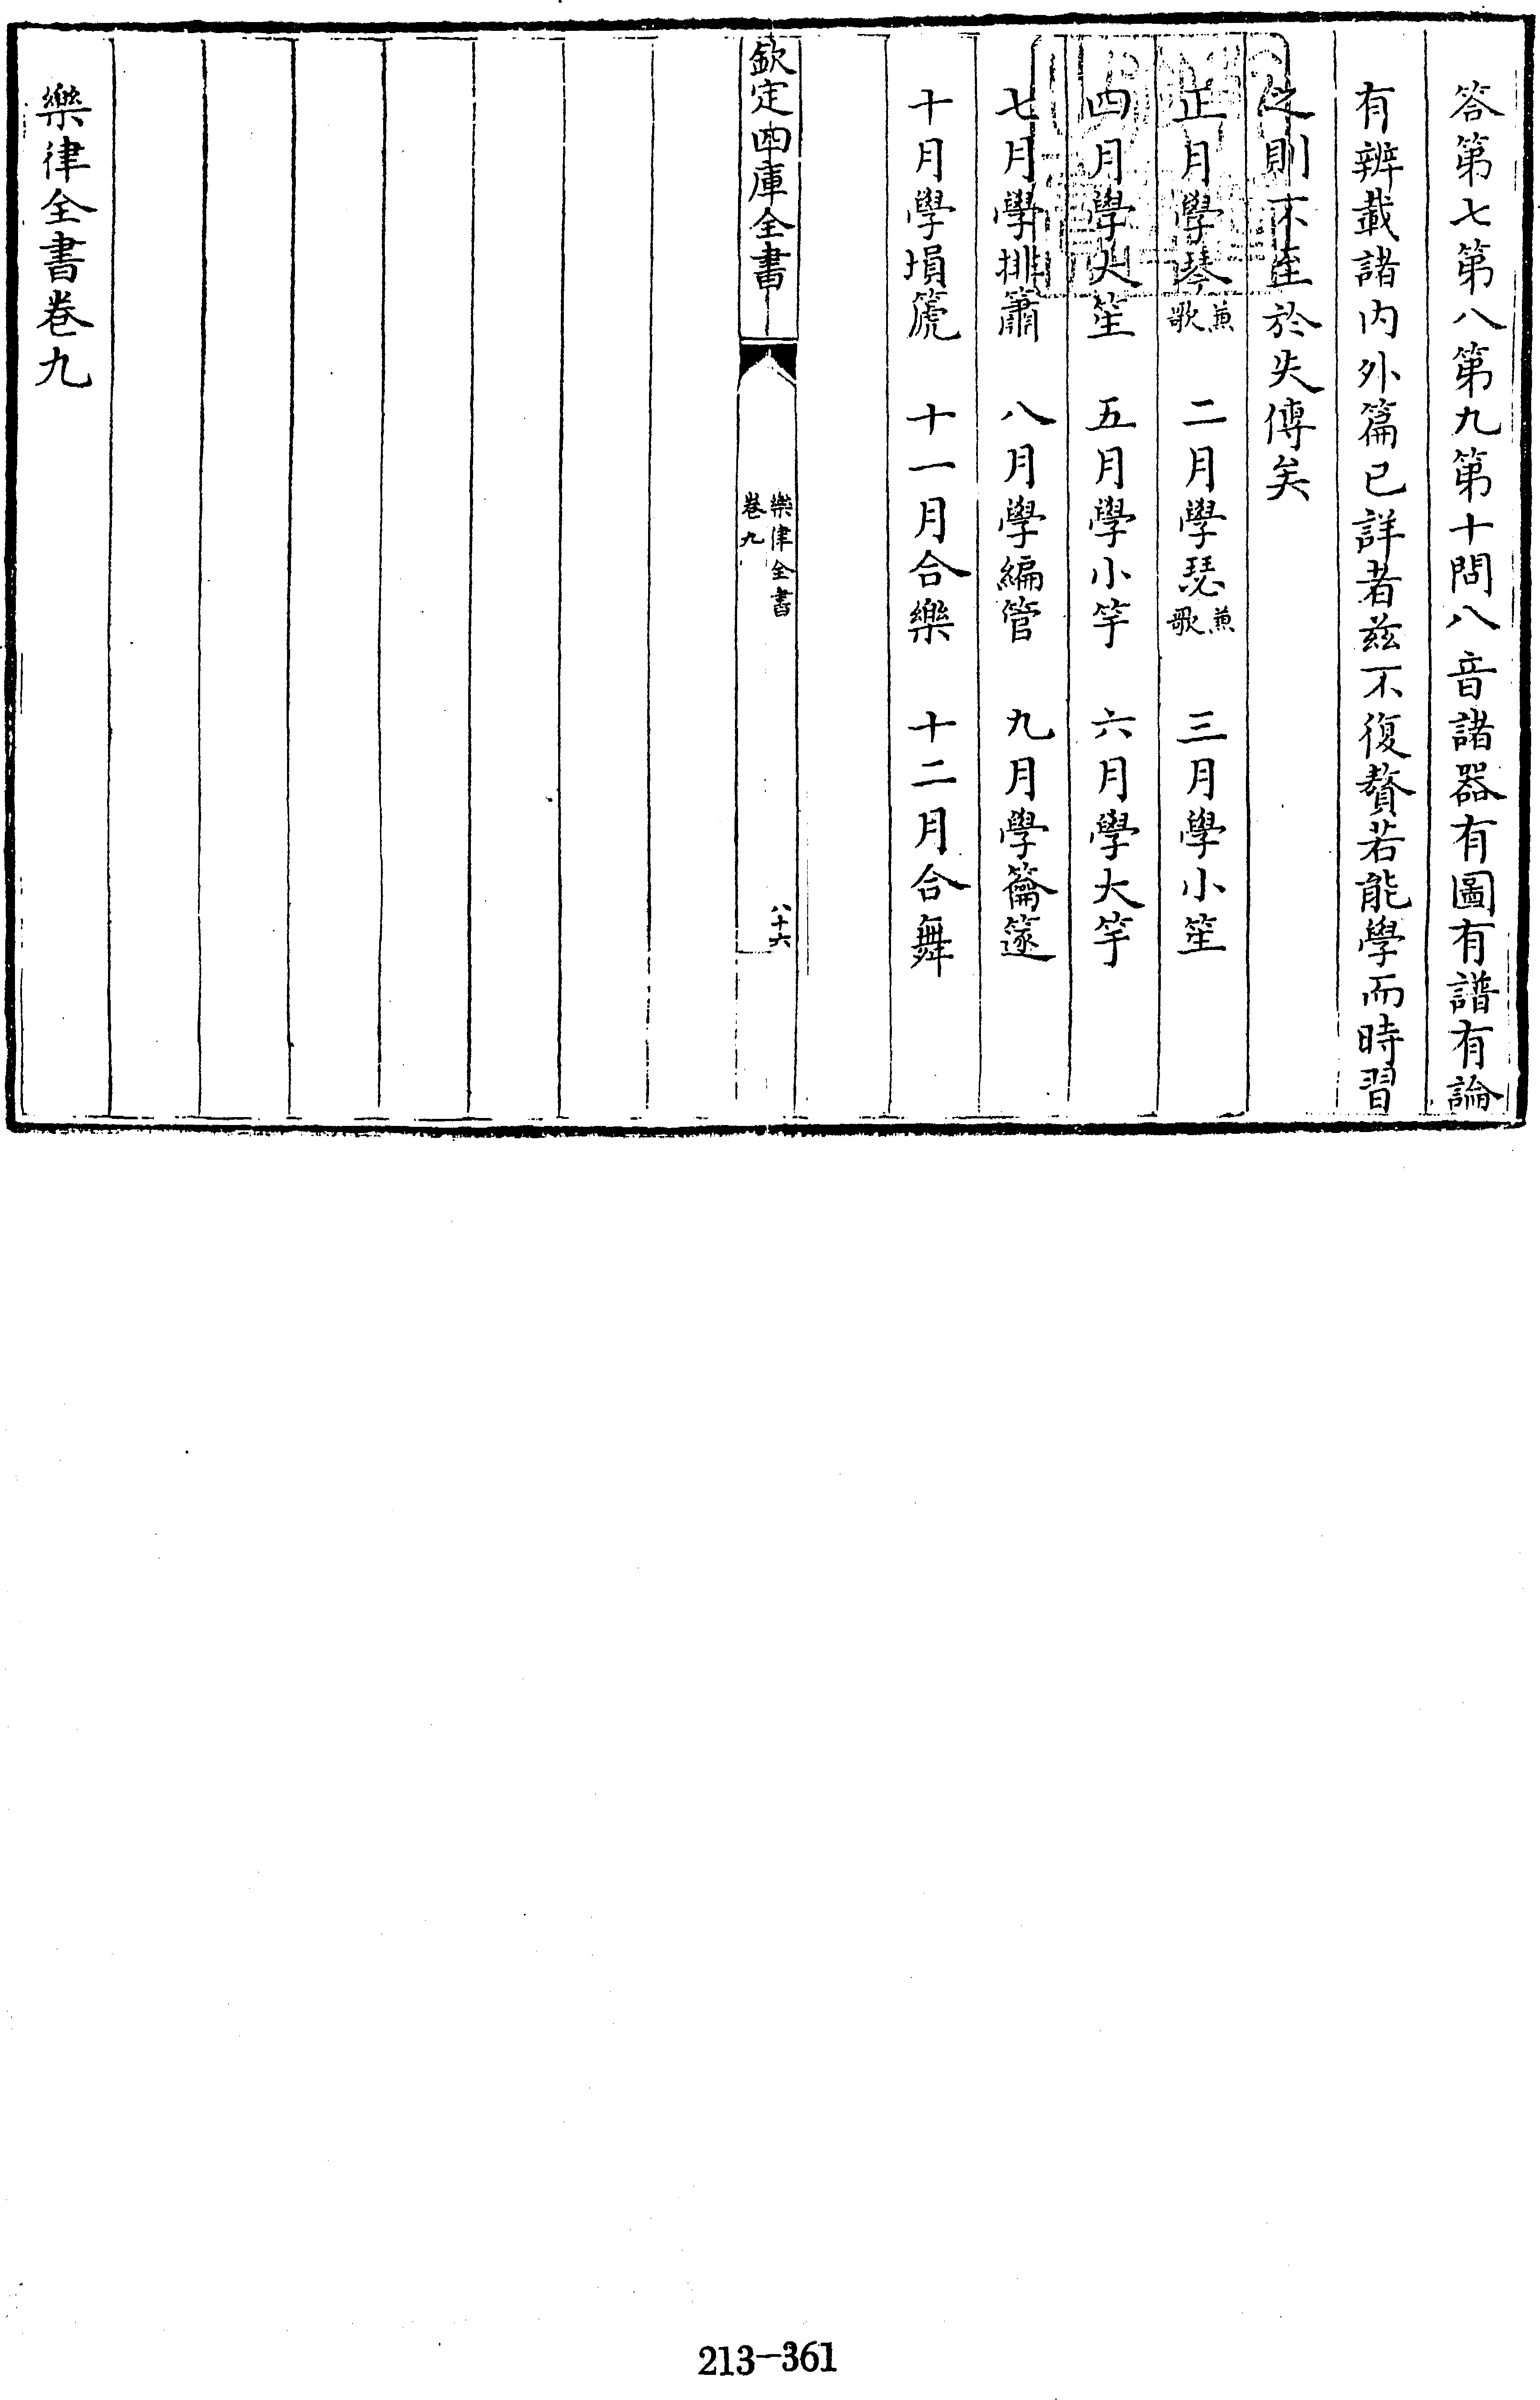 答第七第八第九第十問八音諸器有圖有譜有論
有辨載諸内外篇已詳者兹不復贅若能學而時習
之則不至於失傳矣
正月學琴兼歌　二月學瑟兼歌　三月學小笙
四月學大笙　五月學小竽　六月學大竽
七月學排簫　八月學編管　九月學籥篴
十月學塤篪　十一月合樂　十二月合舞
欽定四庫全書
樂律全書
卷九
八十六
樂律全書卷九
213-361